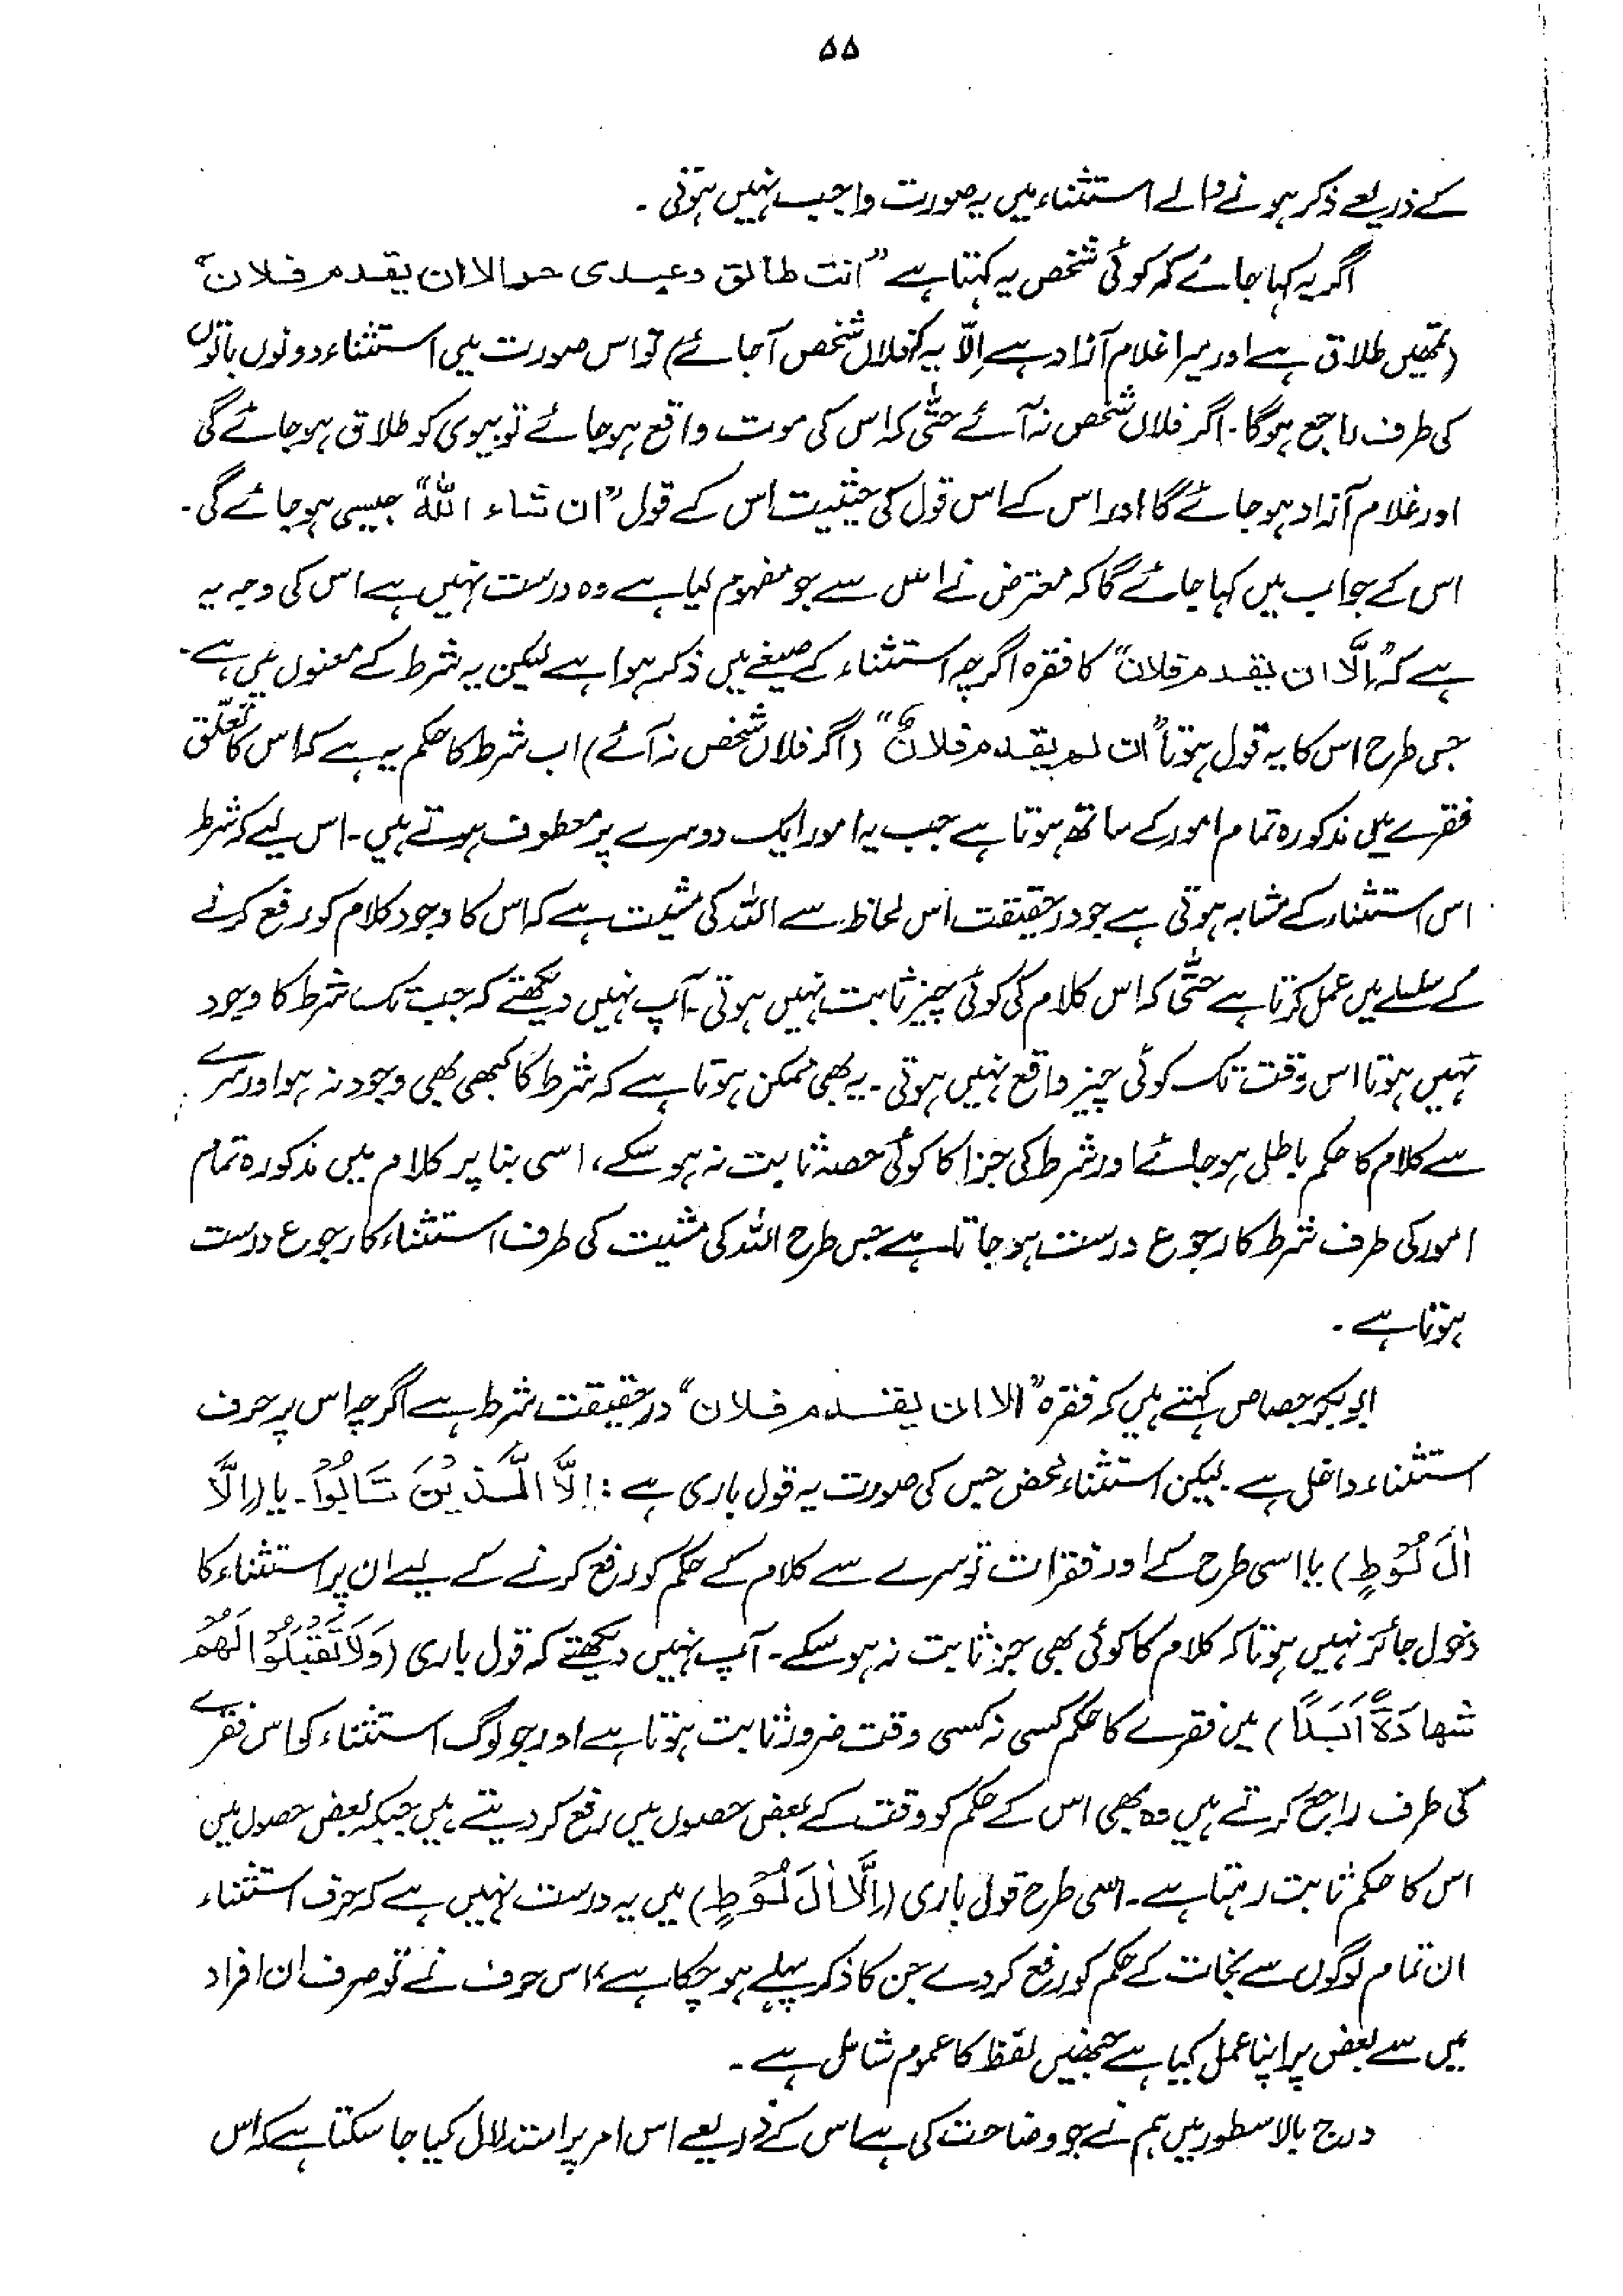 ۵۵
کے ذریعے ذکر ہونے والے استثناء میں یہ صورت واجب نہیں ہوتی ۔
اگر یہ کہا جائے کہ کوئی شخص یہ کہتا ہے "انت طالق وعبدی حر الا ان یقدم فلان"
(تمھیں طلاق ہے اور میرا غلام آزاد ہے اِلّا یہ کہ فلاں شخص آجائے) تو اس صورت میں استثناء دونوں باتوں
کی طرف راجع ہوگا۔ اگر فلاں شخص نہ آئے حتّٰی کہ اس کی موت واقع ہوجائے تو بیوی کو طلاق ہوجائے گی
اور غلام آزاد ہوجائے گا اور اس کے اس قول کی حیثیت اس کے قول "ان شاء اللّٰہ" جیسی ہوجائے گی۔
اس کے جواب میں کہا جائے گا کہ معترض نے اس سے جو مفہوم لیا ہے وہ درست نہیں ہے اس کی وجہ یہ
ہے کہ "الَّا ان یقدم فلان" کا فقرہ اگرچہ استثناء کے صیغے میں ذکر ہوا ہے لیکن یہ شرط کے معنوں میں ہے۔
جس طرح اس کا یہ قول ہوتا "ان لم یقدم فلانٌ" (اگر فلاں شخص نہ آئے) اب شرط کا حکم یہ ہے کہ اس کا تعلّق
فقرے میں مذکورہ تمام امور کے ساتھ ہوتا ہے جب یہ امور ایک دوسرے پر معطوف ہوتے ہیں۔ اس لیے کہ شرط
اس استثناء کے مشابہ ہوتی ہے جو درحقیقت اس لحاظ سے اللہ کی مشیت ہے کہ اس کا وجود کلام کو رفع کرنے
کے سلسلے میں عمل کرتا ہے حتّٰی کہ اس کلام کی کوئی چیز ثابت نہیں ہوتی۔ آپ نہیں دیکھتے کہ جب تک شرط کا وجود
نہیں ہوتا اس وقت تک کوئی چیز واقع نہیں ہوتی۔ یہ بھی ممکن ہوتا ہے کہ شرط کا کبھی بھی وجود نہ ہو اور سرے
سے کلام کا حکم باطل ہوجائے اور شرط کی جزا کا کوئی حصہ ثابت نہ ہوسکے، اسی بنا پر کلام میں مذکورہ تمام
امور کی طرف شرط کا رجوع درست ہوجاتا ہے جس طرح اللہ کی مشیت کی طرف استثناء کا رجوع درست
ہوتا ہے ۔
ابوبکر جصاص کہتے ہیں کہ فقرہ "الا ان یقدم فلان" درحقیقت شرط ہے اگرچہ اس پر حرف
استثناء داخل ہے۔ لیکن استثناء محض جس کی صورت یہ قول باری ہے: اِلَّا الَّذِیْنَ تَابُوْا۔ یا (اِلَّا
اٰلَ لُوْطٍ) یا اسی طرح کے اور فقرات تو سرے سے کلام کے حکم کو رفع کرنے کے لیے ان پر استثناء کا
دخول جائز نہیں ہوتا کہ کلام کا کوئی بھی جز ثابت نہ ہوسکے۔ آپ نہیں دیکھتے کہ قول باری (وَلَا تَقْبَلُوْا لَھُمْ
شَھَادَۃً اَبَدًا) میں فقرے کا حکم کسی نہ کسی وقت ضرور ثابت ہوتا ہے اور جو لوگ استثناء کو اس فقرے
کی طرف راجع کرتے ہیں وہ بھی اس کے حکم کو وقت کے بعض حصوں میں رفع کردیتے ہیں جبکہ بعض حصوں میں
اس کا حکم ثابت رہتا ہے۔ اسی طرح قول باری (اِلَّا اٰلَ لُوْطٍ) میں یہ درست نہیں ہے کہ حرف استثناء
ان تمام لوگوں سے نجات کے حکم کو رفع کردے جن کا ذکر پہلے ہوچکا ہے، اس حرف نے تو صرف ان افراد
میں سے بعض پر اپنا عمل کیا ہے جنھیں لفظ کا عموم شامل ہے ۔
درج بالا سطور میں ہم نے جو وضاحت کی ہے اس کے ذریعے اس امر پر استدلال کیا جاسکتا ہے کہ اس